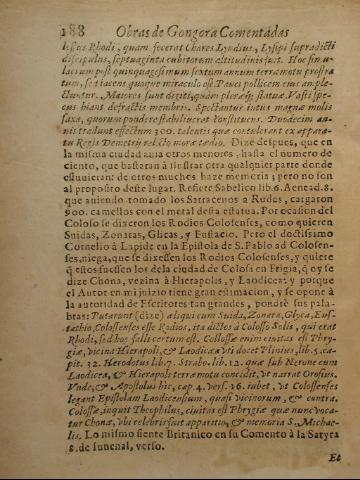 188 Obras de Gongora Comentadas
lissus Rhodi, quam fecerat Chares Lyndius, Lysipi supradicti
discipulus, septuaginta cubitorum altitudinis fuit. Hoc simu-
lacrum post quinquagesimum sextum annum terramotu prostra
tum, sed iacens quoque miraculo est. Pauci pollicem eius ample-
ctuntur. Maiores sunt digiti, quam pleræq; statuæ. Vasti spe-
cus hiant defractis membris. Spectantur intus magnæ molis
saxa, quorum pondere stabiliuerat constituens. Duodecim an-
nis tradunt effectum 300. talentis quæ contulerant ex appara-
tu Regis Demetrij relicto moræ tædio. Dize despues, que en
la misma ciudad auia otros menores, hasta el numero de
ciento, que bastaran à ilustrar otra qualquier parte donde
estuuieran: de otros muchos haze memoria; pero no son
al proposito deste lugar. Refiere Sabelico lib. 6. Aenead. 8.
que auiendo tomado los Sarracenos a Rodas, cargaron
900. camellos con el metal desta estatua. Por ocasion del
Coloso se dixeron los Rodios Colosenses, como quieren
Suidas, Zonaras, Glicas, y Eustacio. Pero el doctissimo
Cornelio à Lapide en la Epistola de S. Pablo ad Colosen-
ses, niega, que se dixessen los Rodios Colosenses, y quiere
q̃ estos fuessen los de la ciudad de Colosa en Frigia, q̃ oy se
dize Chona, vezina à Hierapolis, y Laodicea: y porque
el Autor en mi juizio tiene gran estimacion, y se opone à
la autoridad de Escritores tan grandes, pondrè sus pala-
bras: Putarunt (dize) aliqui cum Suida, Zonara, Glyca, Eus-
tathio, Colossenses esse Rodios, ita dictos à Colosso Solis, qui erat
Rhodi, sed hos falli certum est. Colossæ enim ciuitas est Phry-
giæ, vicina Hierapoli, & Laodicææ vti docet Plinius, lib. 5. ca-
pit. 32. Herodotus lib. 7. Strabo. lib. 12. quæ sub Nerone cum
Laodicea, & Hierapoli terræ motu concidit, vt narrat Orosius.
Vnde, & Apostolus hic, cap. 4. vers. 16. iubet, vt Colossenses
legant Epistolam Laodicensium, quasi vicinorum, & contra.
Colossæ, inquit Theophilus, ciuitas est Phrygiæ quæ nunc voca-
tur Chonæ, vbi celebris fuit apparitus, & memoria S. Michae-
lis. Lo mismo siente Britanico en su Comento à la Satyra
8. de Iuuenal, verso.
Et